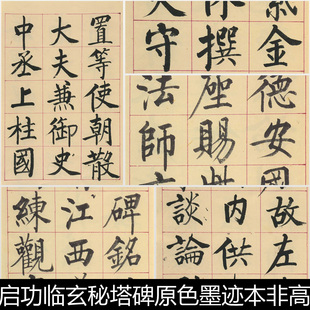 置等使朝散
大夫兼御史
中丞上柱國
金
撰
守
德安
座賜
法師
碑銘
江西
練觀
故左
内供
談論
启功临玄秘塔碑原色墨迹本非高